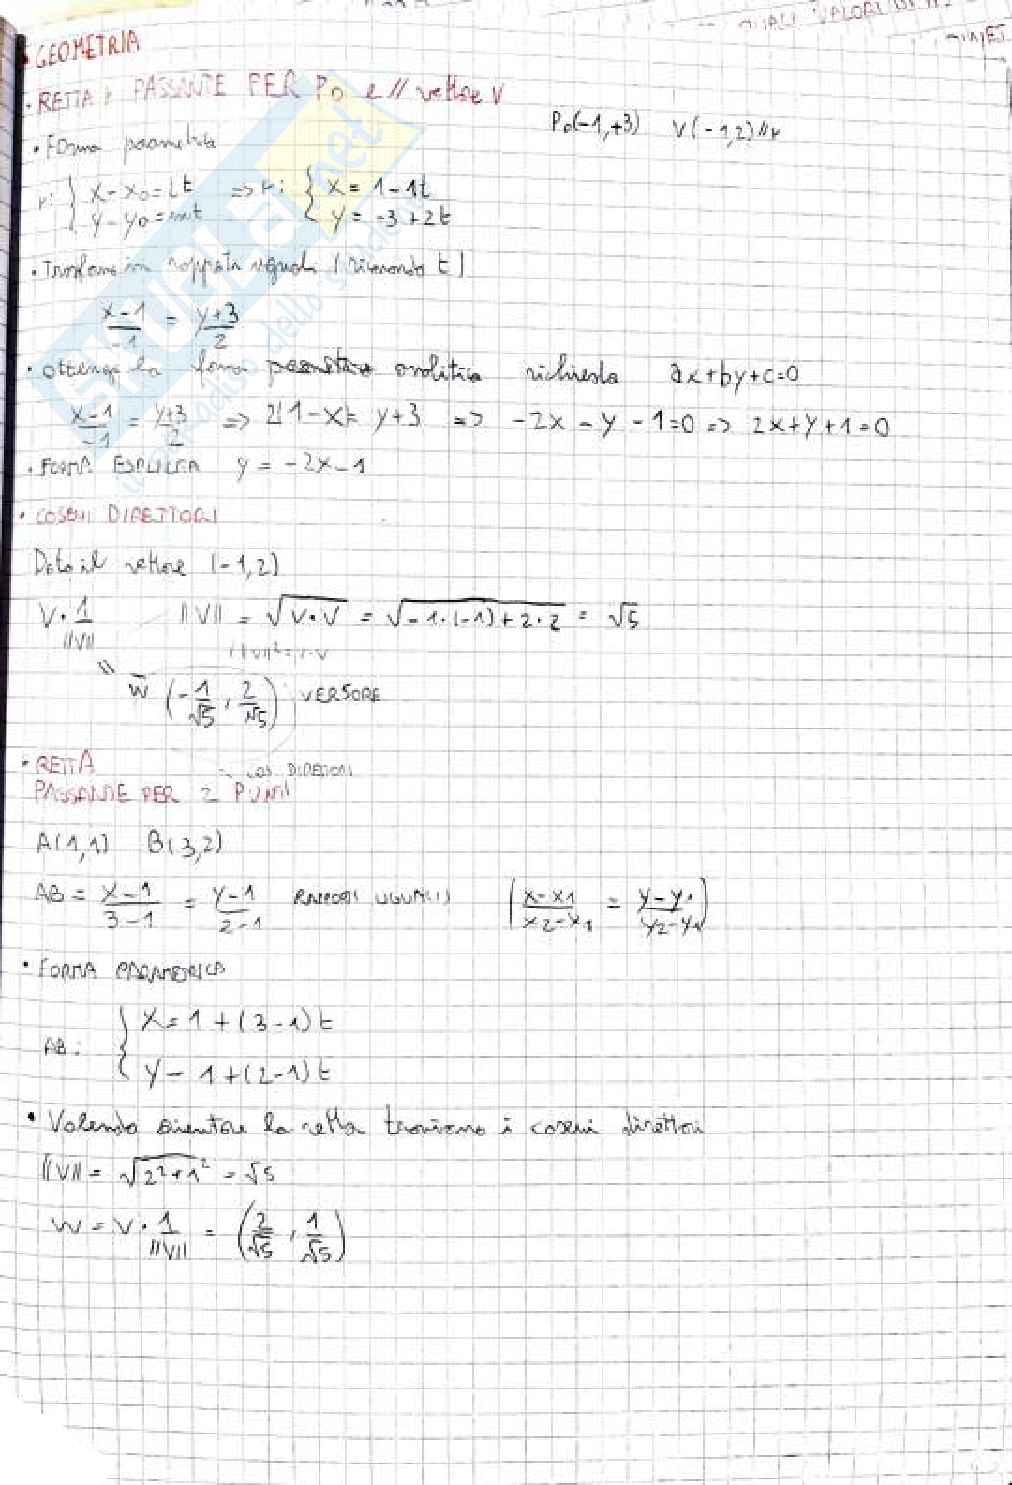 QUALI VALORI DI
• GEOMETRIA
• RETTA r PASSANTE PER P0 e // vettore V
P0(-1,+3) V(-1,2)//r
• Forma parametrica
r: { x-x0=lt => r: { x = 1-1t
y-y0=mt y = -3+2t
• Trasformo in rapporti uguali (ricavando t)
x-1/-1 = y+3/2
• Ottengo la forma analitica richiesta ax+by+c=0
x-1/-1 = y+3/2 => 2(1-x)= y+3 => -2x-y-1=0 => 2x+y+1=0
• FORMA ESPLICITA y = -2x-1
• COSENI DIRETTORI
Dato il vettore (-1,2)
V·1/||V|| ||V|| = √V·V = √-1·(-1)+2·2 = √5
||V||²=V·V
//
W (-1/√5, 2/√5) VERSORE
• RETTA
COS. DIRETTORI
PASSANTE PER 2 PUNTI
A(1,1) B(3,2)
AB = x-1/3-1 = y-1/2-1 RAPPORTI UGUALI) (x-x1/x2-x1 = y-y1/y2-y1)
• FORMA PARAMETRICA
AB: { x=1+(3-1)t
y-1+(2-1)t
• Volendo orientare la retta troviamo i coseni direttori
||V|| = √2²+1² = √5
W = V·1/||V|| = (2/√5, 1/√5)